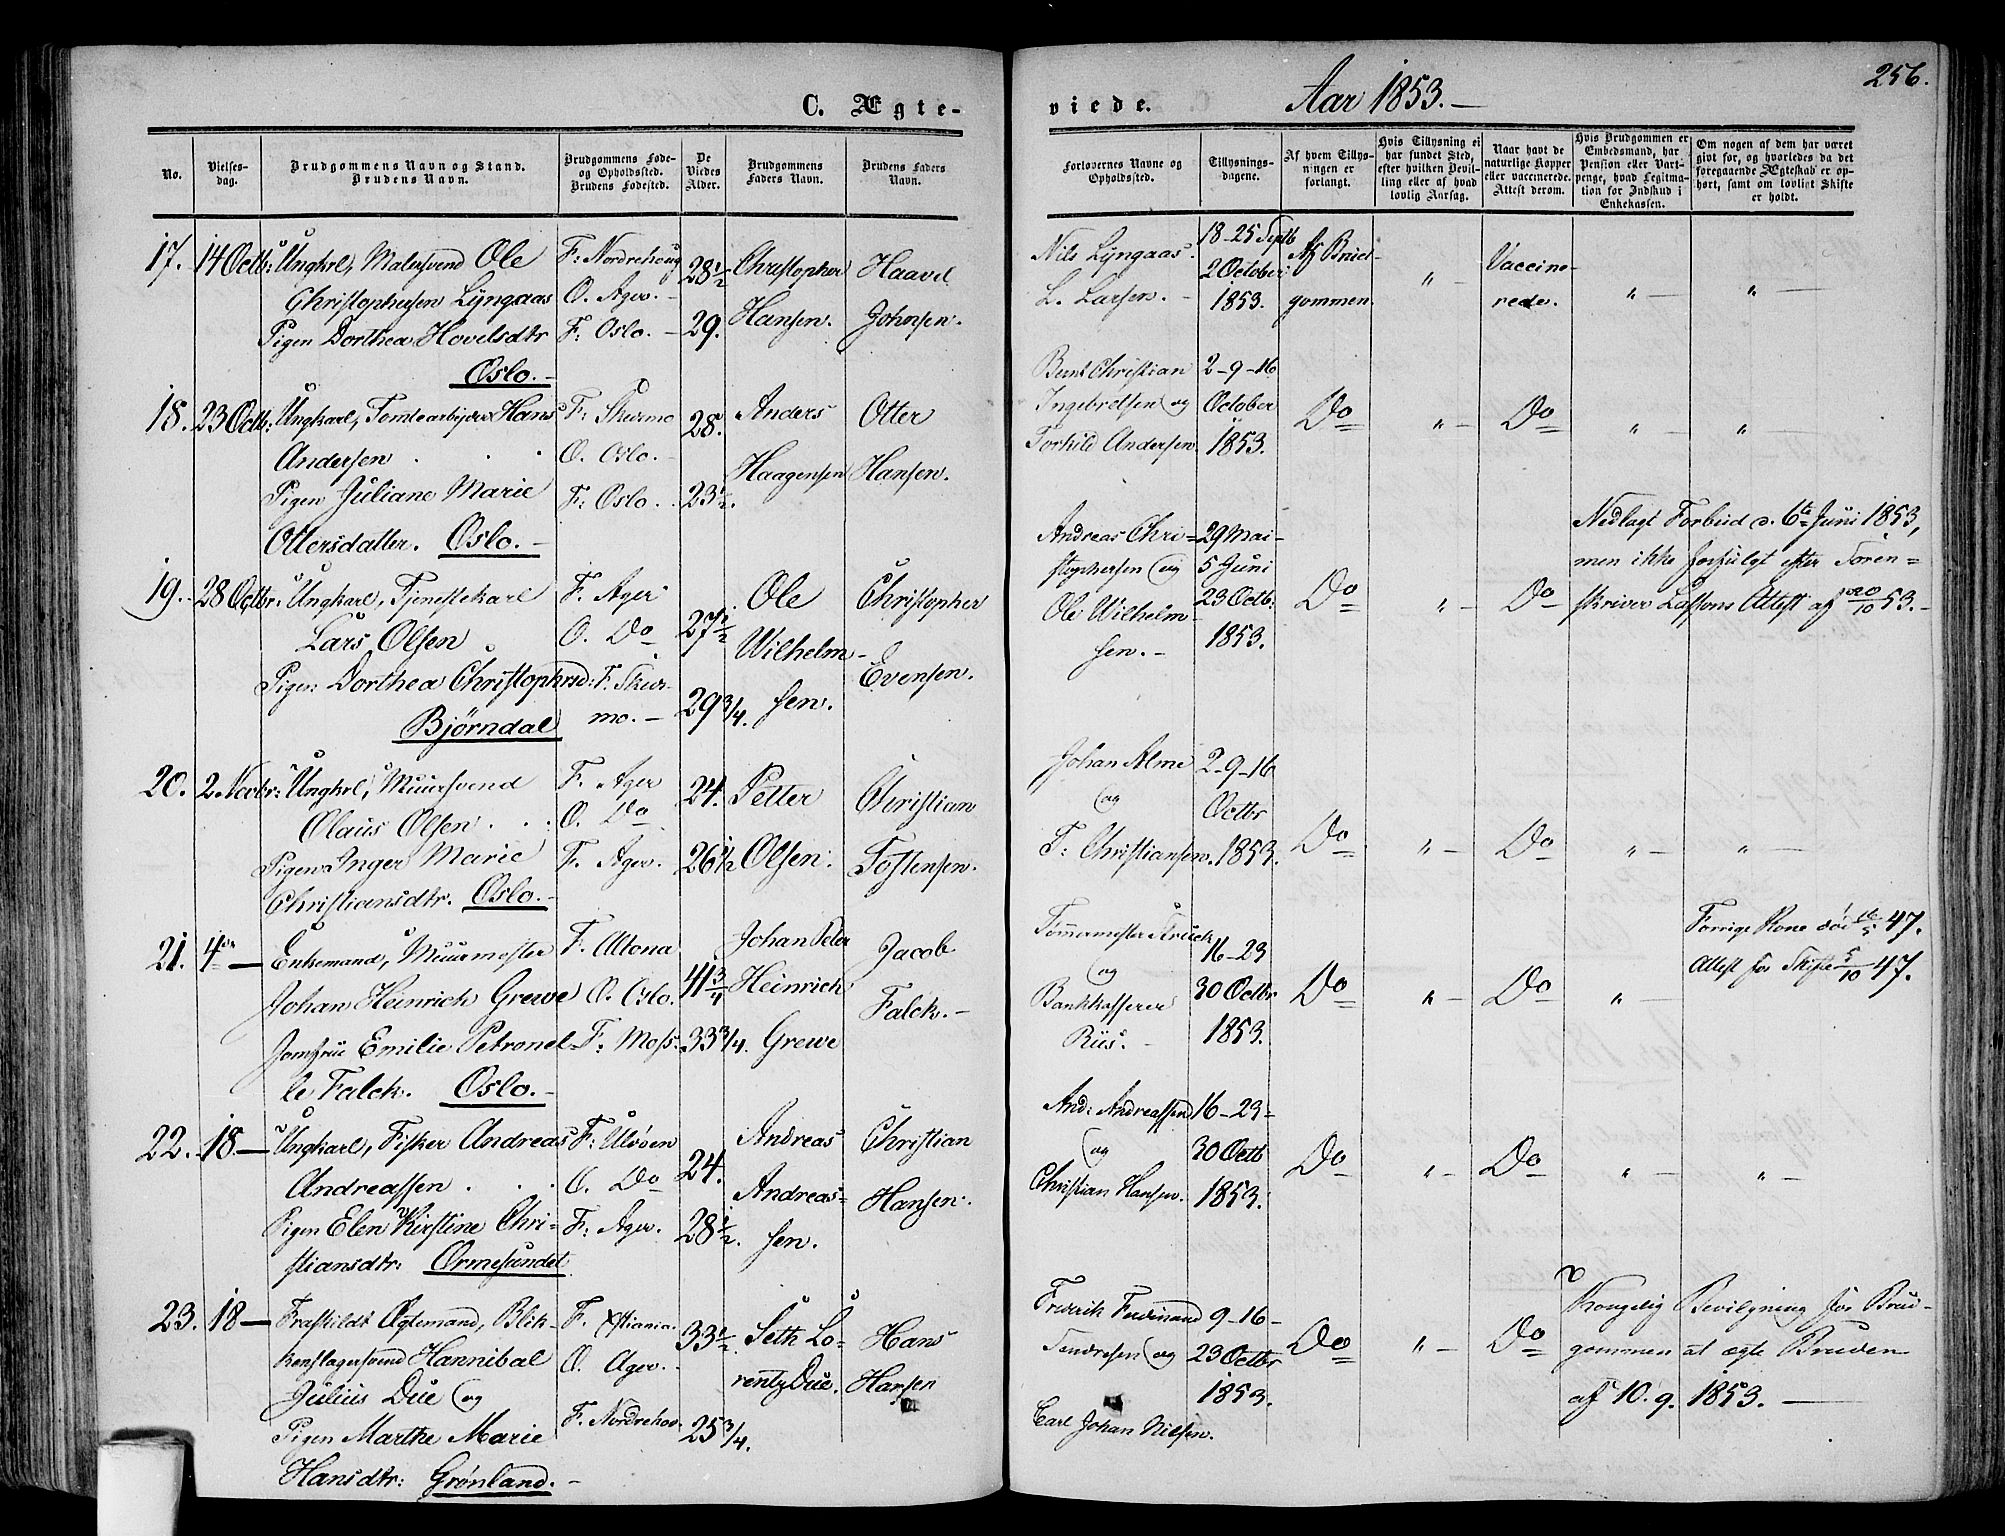 C. Ægte-
viede.
Aar 1853.—
256.
No.
Vielses-
dag.
Brudgommens Navn og Stand.
Brudens Navn.
Brudgommens Føde-
og Opholdssted.
Brudens Fødested.
De
Viedes
Alder.
Brudgommens
Faders Navn.
Brudens Faders
Navn.
Forlovernes Navne og
Opholdssted.
Tillysnings-
dagene.
Af hvem Tillys-
ningen er
forlangt.
Hvis Tillysning ei
har fundet Sted,
efter hvilken Bevil-
ling eller af hvad
lovlig Aarsag.
Naar havt de
naturlige Kopper
eller vaccinerede.
Attest derom.
Hvis Brudgommen er
Embedsmand, har
Pension eller Vart-
penge, hvad Legitima-
tion for Indskud i
Enkekassen.
Om nogen af dem har været
givt før, og hvorledes da det
foregaaende Ægteskab er op-
hørt, samt om lovligt Skifte
er holdt.
17. 14 Octb: Ungkrl, Malersvend Ole
Christophersen Lyngaas
Pigen Dorthea Hovelsdtr
Oslo.—
F: Nordrehoug
O. Ager.—
F: Oslo.—
28 1/2
29.
Christopher
Hansen.
Haavel
Johnsen.
Nils Lyngaas.
L. Larsen.—
18-25 Septb
2 October
1853.
Af Brud-
gommen.
" —
Vaccine-
rede.
" —
" —
18. 23 Octb: Ungkarl, Tomtearbejder Hans
Andersen . . .
Pigen Juliane Marie
Ottersdatter. Oslo.—
F: Skurmo
O. Oslo.—
F: Oslo.
28.
23 1/2.
Anders
Haagensen
Otter
Hansen.
Bent Christian
Ingebretsen og
Torkild Andersen.
2-9-16
October
1853.
Do
" —
Do
" —
" —
19. 28 Octbr: Ungkarl, Tjenestekarl
Lars Olsen
Pigen Dorthea Christophrsd:
Bjørndal
F. Ager
O. Do
F. Skur-
mo.—
27 1/2
29 3/4.
Ole
Wilhelm-
sen.
Christopher
Evensen.
Andreas Chri-
stophersen og
Ole Wilhelm-
sen.—
29 Mai-
5 Juni
23 Octb:
1853.
Do
" —
Do
Nedlagt Forbud d. 6te Juni 1853,
men ikke forfulgt efter Soren-
skriver Lassons Attest af 20/10 53.—
20. 2 Novbr: Ungkrl, Muursvend
Olaus Olsen . . .
Pigen Inger Marie
Christiansdtr. Oslo.—
F. Ager
O. Do
F. Ager.
24.
26 1/2
Petter
Olsen.
Christian
Tostensen.
Johan Alme
og
T: Christiansen.
2-9-16
Octbr
1853.
Do
" —
Do
" —
" —
21. 4de — Enkemand, Muurmester
Johan Heinrich Grewe
Jomfrue Emilie Petronel-
le Falck. Oslo.—
F. Altona
O. Oslo.
F: Moss.
41 3/4
33 3/4.
Johan Peter
Heinrich
Grewe
Jacob
Falck.—
Tømmermester Struck
og
Bankkasserer
Riis.—
16-23
30 Octbr
1853.
Do
" —
Do
" —
Forrige Kone død 47.
Attest for Skifte 5/10 47.
22. 18 — Ungkarl, Fisker Andreas
Andreassen . . .
Pigen Elen Kirstine Chri-
stiansdtr: Ormesundet
F: Ulvøen
O. Do
F: Ager.
24.
28 1/2.
Andreas
Andreas-
sen.
Christian
Hansen.
And: Andreassen
og
Christian Hansen.
16-23-
30 Octb
1853.
Do
" —
Do
" —
" —
23. 18 — Fraskildt Ægtemand, Blik-
kenslagersvend Hannibal
Julius Due og
Pigen Marthe Marie
Hansdtr: Grønland.—
F. Xstiania.
O. Ager.—
F. Nordrehov.
33 1/2.
25 3/4.
Seth Lo-
rentz Due.
Hans
Hansen
Fredrik Ferdinand
Tendresen og
Carl Johan Nilsen.
9-16-
23 Octbr
1853.
Do
" —
Do
Kongelig Bevilgning for Brud-
gommen at ægte Bruden
af 10. 9. 1853.—